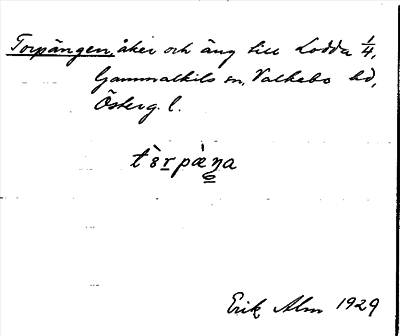 Torpängen, åker och äng till Lodda 1/4,
Gammalkils sn, Valkebo hd,
Österg. l.
tɛ̀rpæ̀ŋa
Erik Alm 1929